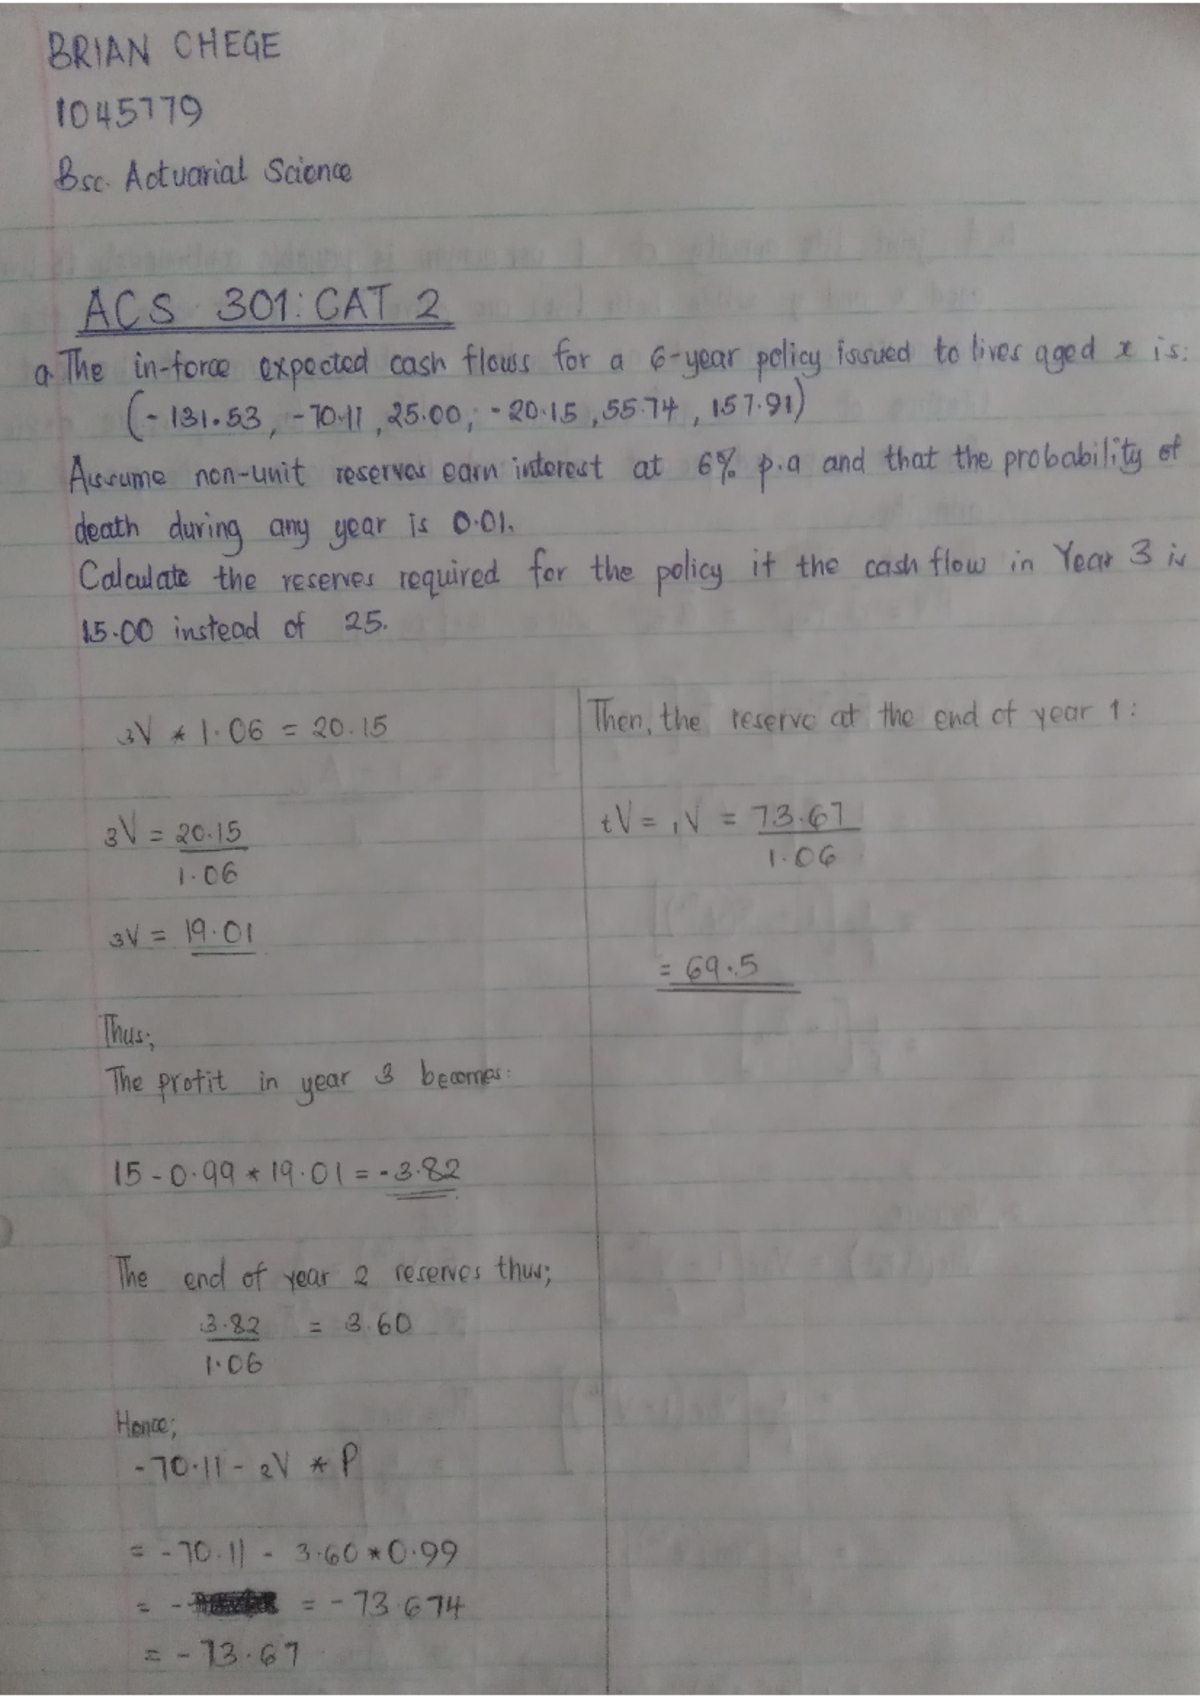 BRIAN CHEGE
1045779
Bsc. Actuarial Science
ACS 301: CAT 2
a. The in-force expected cash flows for a 6-year policy issued to lives aged x is:
(-131.53, -70.11, 25.00, -20.15, 55.74, 157.91)
Assume non-unit reserves earn interest at 6% p.a and that the probability of
death during any year is 0.01.
Calculate the reserves required for the policy if the cash flow in Year 3 is
15.00 instead of 25.
3V * 1.06 = 20.15
3V = 20.15
1.06
3V = 19.01
Thus;
The profit in year 3 becomes:
15 - 0.99 * 19.01 = -3.82
The end of year 2 reserves thus;
3.82 = 3.60
1.06
Hence;
-70.11 - 2V * P
= -70.11 - 3.60 * 0.99
= - = -73.674
= -73.67
Then, the reserve at the end of year 1:
tV = 1V = 73.67
1.06
= 69.5